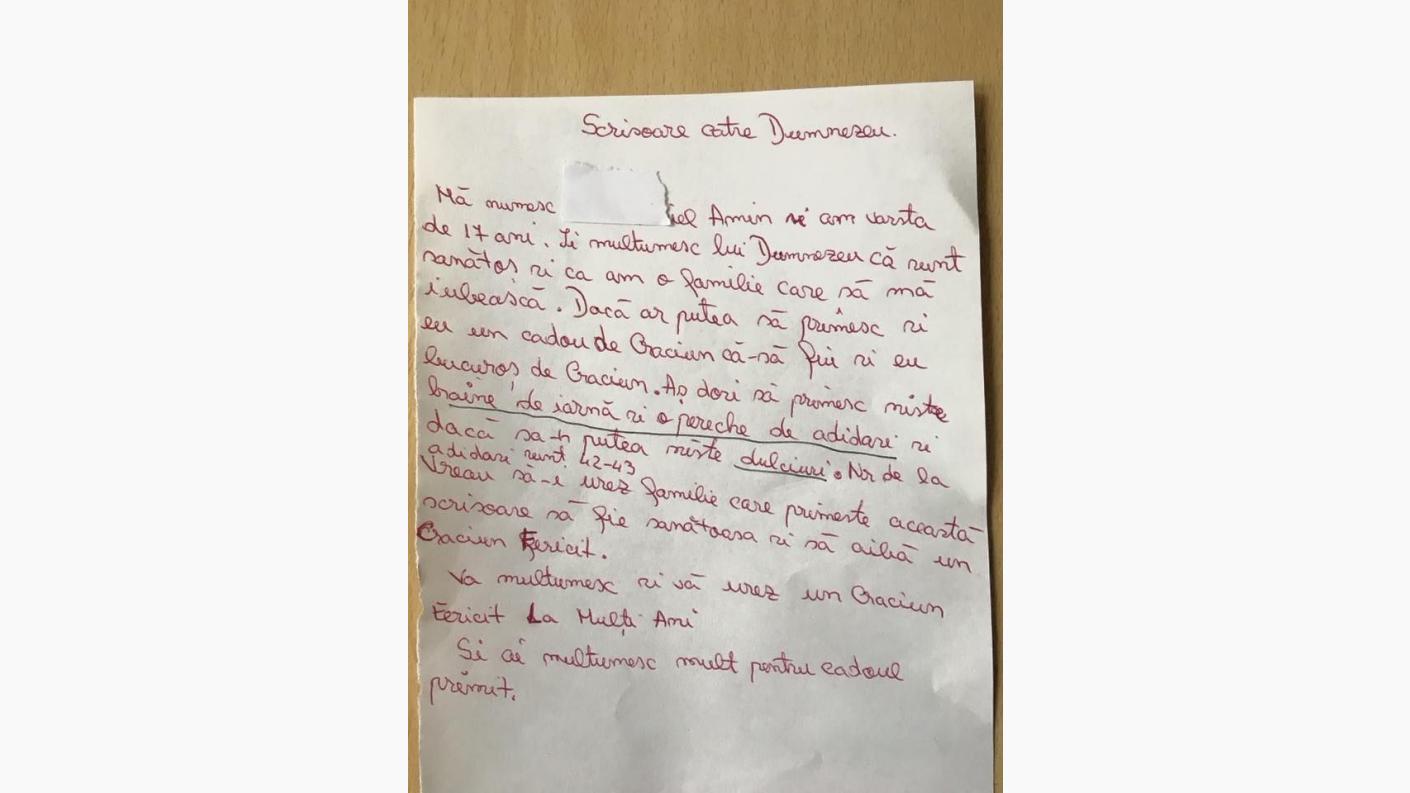 Scrisoare catre Dumnezeu.
Mă numesc iel Amin si am varsta
de 17 ani. Ii multumesc lui Dumnezeu că sunt
sanătos si ca am o familie care să mă
iubească. Dacă ar putea să primesc si
eu un cadou de Craciun că-să fiu si eu
bucuros de Craciun. Aș dori să primesc niste
haine de iarnă si o pereche de adidari si
dacă sa- putea niste dulciuri. Nr de la
adidari sunt 42-43
Vreau să-i urez familie care primeste această
scrisoare să fie sanătoasa si să aibă un
Craciun Fericit.
Va multumesc si vă urez un Craciun
Fericit La Mulți Ani
Si ai multumesc mult pentru cadoul
primit.